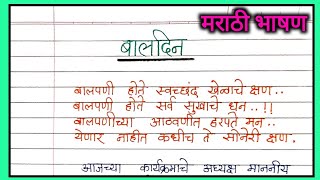 मराठी भाषण
बालदिन
बालपणी होते स्वच्छंद खेळाचे क्षण..
बालपणी होते सर्व सुखाचे धन..!!
बालपणीच्या आठवणीत हरपते मन..
येणार नाहीत कधीच ते सोनेरी क्षण.
आजच्या कार्यक्रमाचे अध्यक्ष माननीय